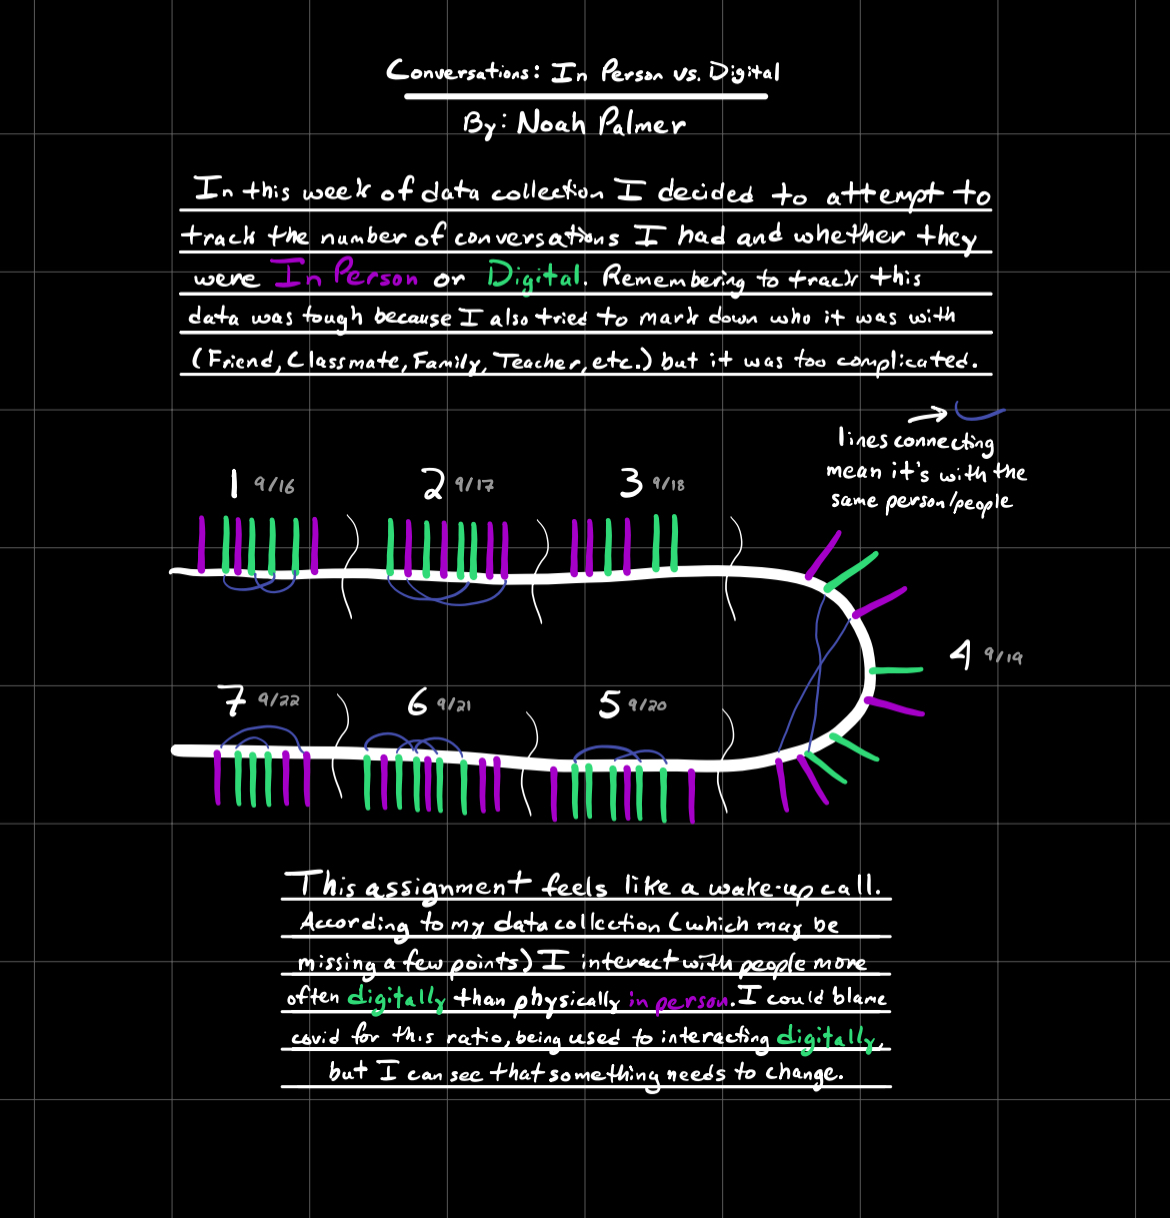 Conversations: In Person vs. Digital
By: Noah Palmer
In this week of data collection I decided to attempt to
track the number of conversations I had and whether they
were In Person or Digital. Remembering to track this
data was tough because I also tried to mark down who it was with
(Friend, Classmate, Family, Teacher, etc.) but it was too complicated.
lines connecting
mean it's with the
same person/people
1 9/16
2 9/17
3 9/18
4 9/19
7 9/22
6 9/21
5 9/20
This assignment feels like a wake-up call.
According to my data collection (which may be
missing a few points) I interact with people more
often digitally than physically in person. I could blame
covid for this ratio, being used to interacting digitally,
but I can see that something needs to change.